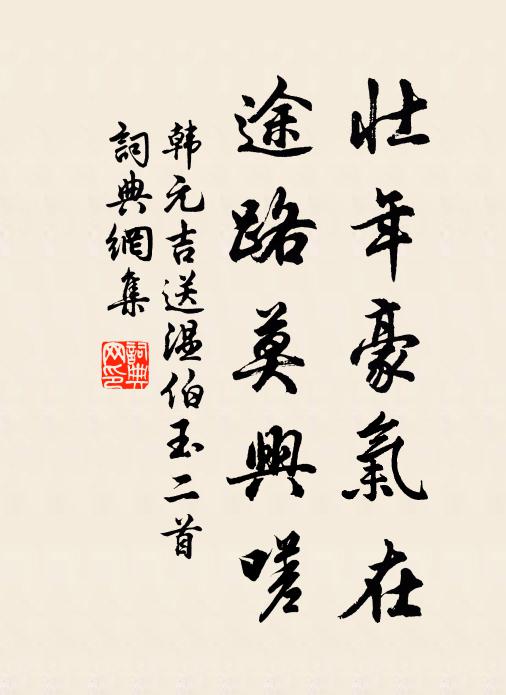 壮年豪氣在
途路莫興嗟
韩元吉送温伯玉二首
詞典網集
詞典網印